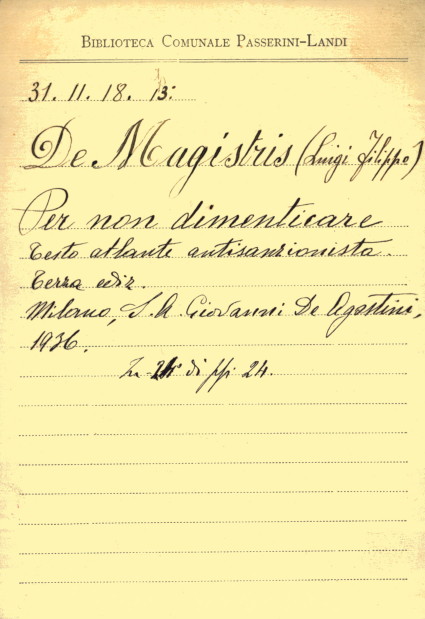 BIBLIOTECA COMUNALE PASSERINI-LANDI
31. 11. 18. 13.
De Magistris (Luigi Filippo)
Per non dimenticare
Testo atlante antisanzionista.
Terza ediz.
Milano, S. A. Giovanni De Agostini,
1936.
In di pp 24.